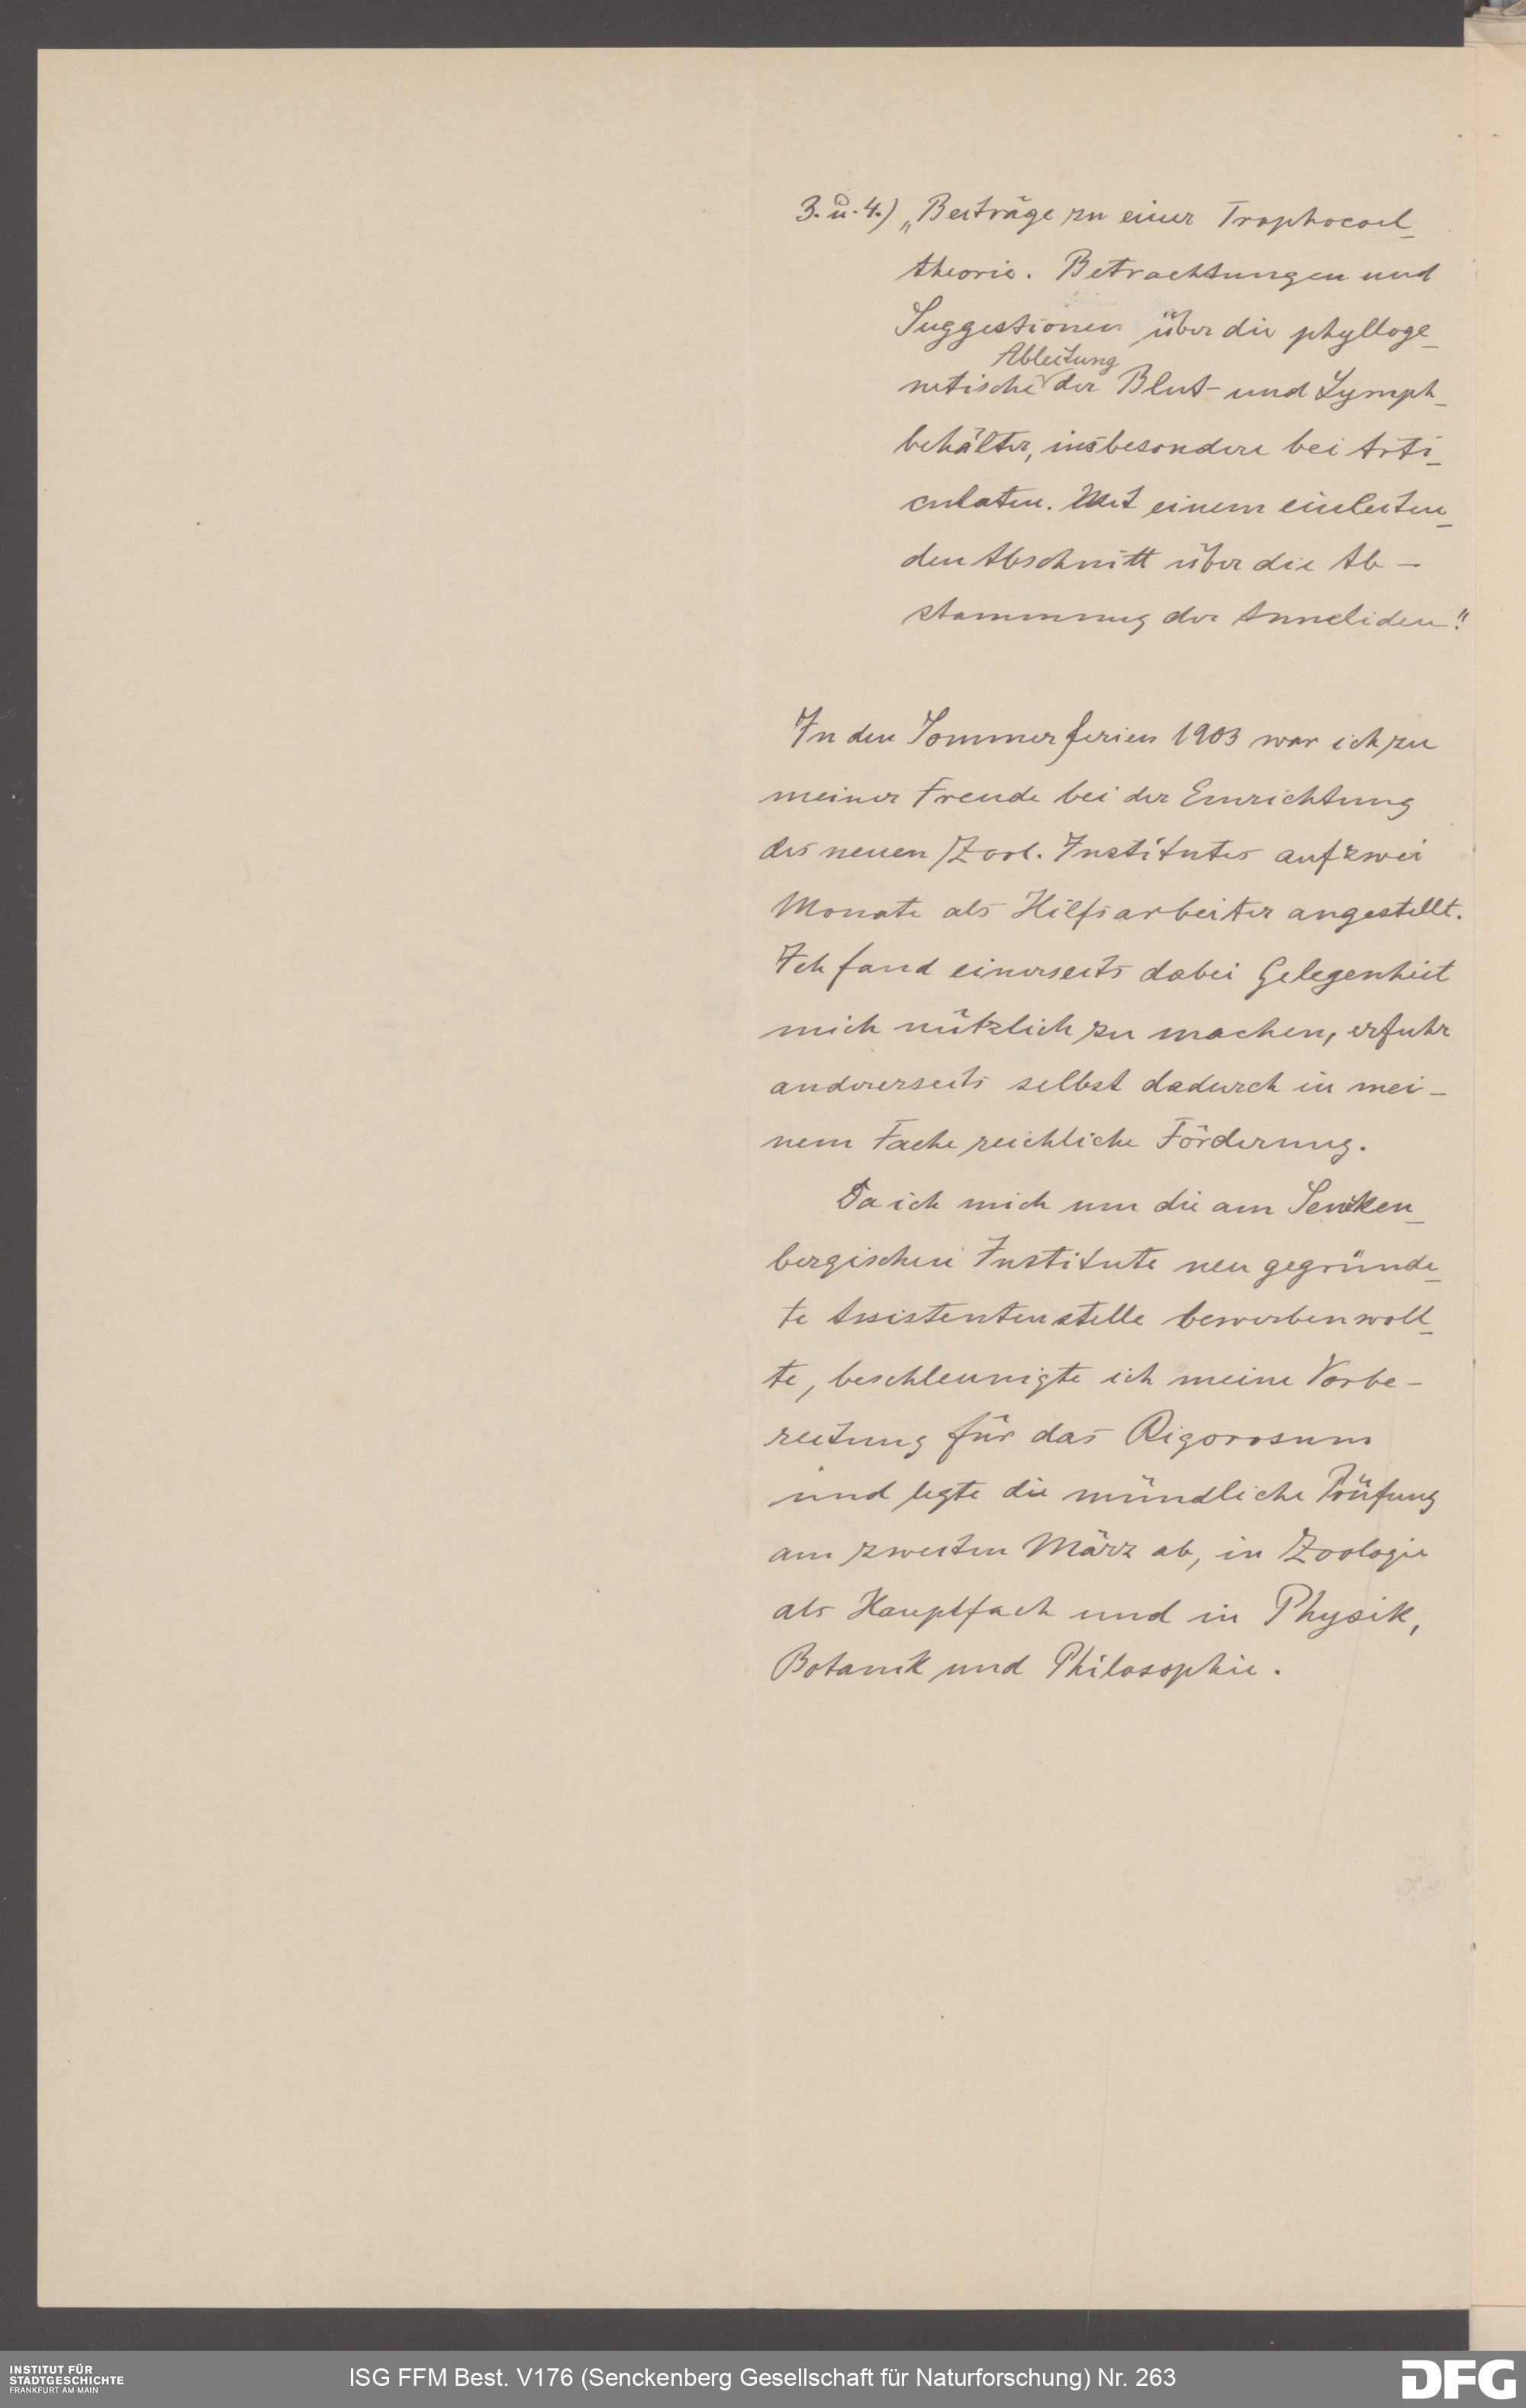 3. u. 4.) „Beiträge zu einer Trophocoel-
theorie. Betrachtungen und
Suggestionen über die phylloge-
Ableitung
netische der Blut- und Lymph-
behälter, insbesondere bei Arti-
culaten. Mit einem einleiten-
den Abschnitt über die Ab-
stammung der Anneliden."
In den Sommerferien 1903 war ich zu
meiner Freude bei der Einrichtung
des neuen Zool. Institutes auf zwei
Monate als Hilfsarbeiter angestellt.
Ich fand einerseits dabei Gelegenheit
mich nützlich zu machen, erfuhr
andererseits selbst dadurch in mei-
nem Fache reichliche Förderung.
Da ich mich um die am Sencken-
bergischen Institute neu gegründe-
te Assistentenstelle bewerben woll-
te, beschleunigte ich meine Vorbe-
reitung für das Rigorosum
und legte die mündliche Prüfung
am zweiten März ab, in Zoologie
als Hauptfach und in Physik,
Botanik und Philosophie.
INSTITUT FÜR
STADTGESCHICHTE
FRANKFURT AM MAIN
ISG FFM Best. V176 (Senckenberg Gesellschaft für Naturforschung) Nr. 263
DFG